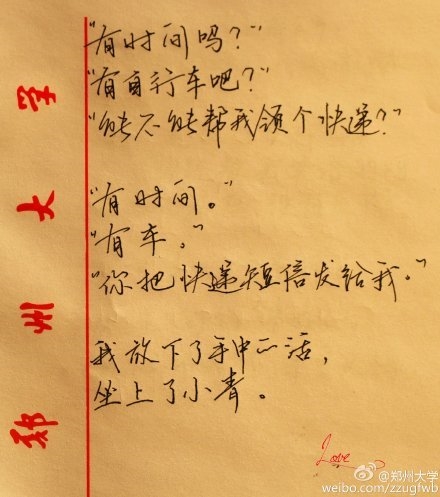 “有时间吗？”
“有自行车吧？”
“能不能帮我领个快递？”
“有时间。”
“有车。”
“你把快递短信发给我。”
我放下了手中的活，
坐上了小青。
郑州大学
Love
@郑州大学
weibo.com/zzugfwb